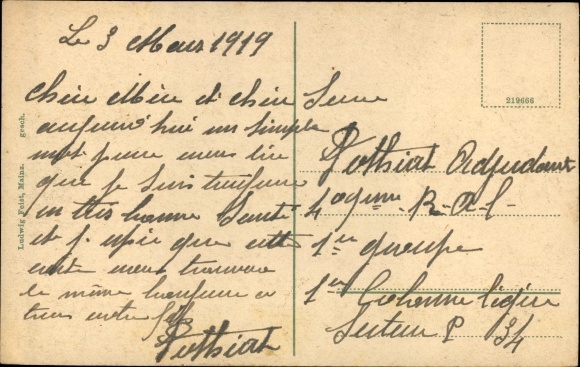 Le 3 Mars 1919
Chère Mère et chère Sœur
aujourd'hui un simple
mot pour vous dire
que je suis toujours
en très bonne Santé
et j'espère que cette
carte vous trouvera
de même bonheur a
tous votre fils
Pothiat
Pothiat Adjudant
109ème R.A.L.
1er groupe
1er Colonne légère
Secteur P 34
219666
Ludwig Feist, Mainz. gesch.